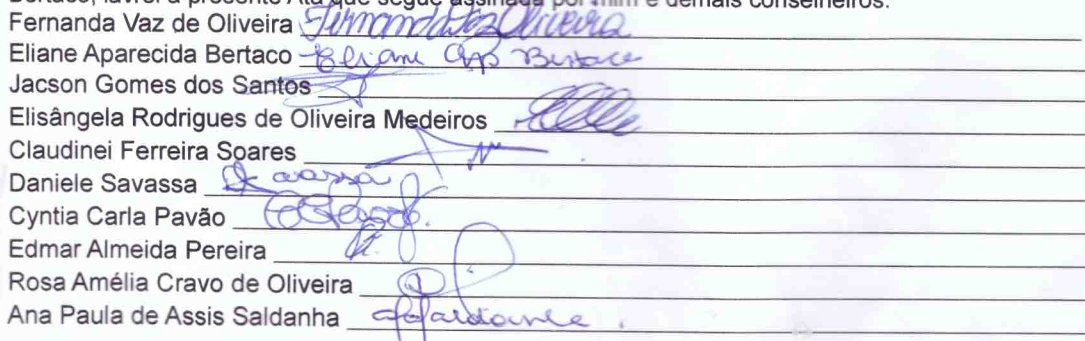 Bertaco, lavrei a presente Ata que segue assinada por mim e demais conselheiros.
Fernanda Vaz de Oliveira Fernanda Vaz Oliveira
Eliane Aparecida Bertaco Eliane Ap Bertaco
Jacson Gomes dos Santos
Elisângela Rodrigues de Oliveira Medeiros
Claudinei Ferreira Soares
Daniele Savassa Savassa
Cyntia Carla Pavão
Edmar Almeida Pereira
Rosa Amélia Cravo de Oliveira
Ana Paula de Assis Saldanha